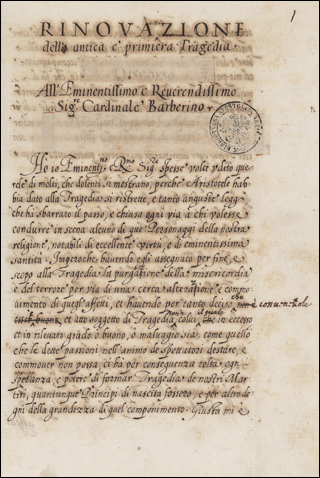 1
RINOVAZIONE
della antica e primiera Tragedia.
All' Eminentissimo e Reverendissimo
Sig.re Cardinale Barberino.
Ho io Eminenti.mo Re.mo Sig.re spesse volte vdito que
rele di molti, che dolenti si mostrano, perche Aristotele hab
bia dato alla Tragedia si ristrette, e tanto anguste legg
che ha sbarrato il passo, e chiusa ogni via a chi volesse
condurre in scena alcuno di que Personaggi della nostra
religione, notabili di eccellente virtu, e di eminentissima
santita. Imperoche hauendo egli assegnato per fine, e
scopo alla Tragedia la purgatione della misericordia
e del terrore per via di una certa alteratione e compo=
uimento di quegl' affetti, et hauendo per tanto deciso, che
et atto soggetto di Tragedia colui che in eccesso
et in rileuati grado o buono, o maluaggio sia, come quello
che le dette passioni nell'animo de spettatori destare, e
commouer non possa, ci ha per consequenza tolta ogni
speranza e potere di formar Tragedia de nostri Mar
tiri, quantunque Principi di nascita fossero, e per altro de
gni della grandezza di quel componimento. Giusta mi è